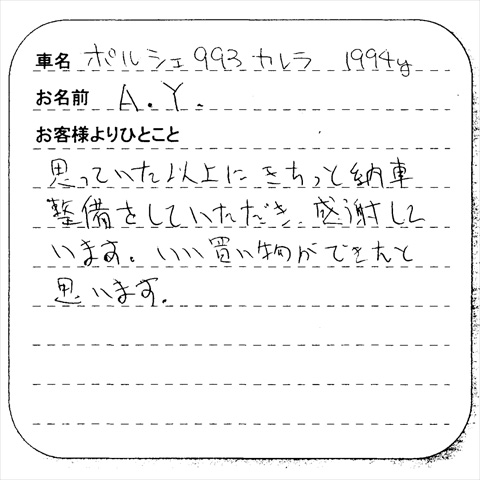 車名 ポルシェ993カレラ 1994y
お名前 A.Y.
お客様よりひとこと
思っていた以上にきちっと納車
整備をしていただき、感謝して
います。いい買い物ができたと
思います。